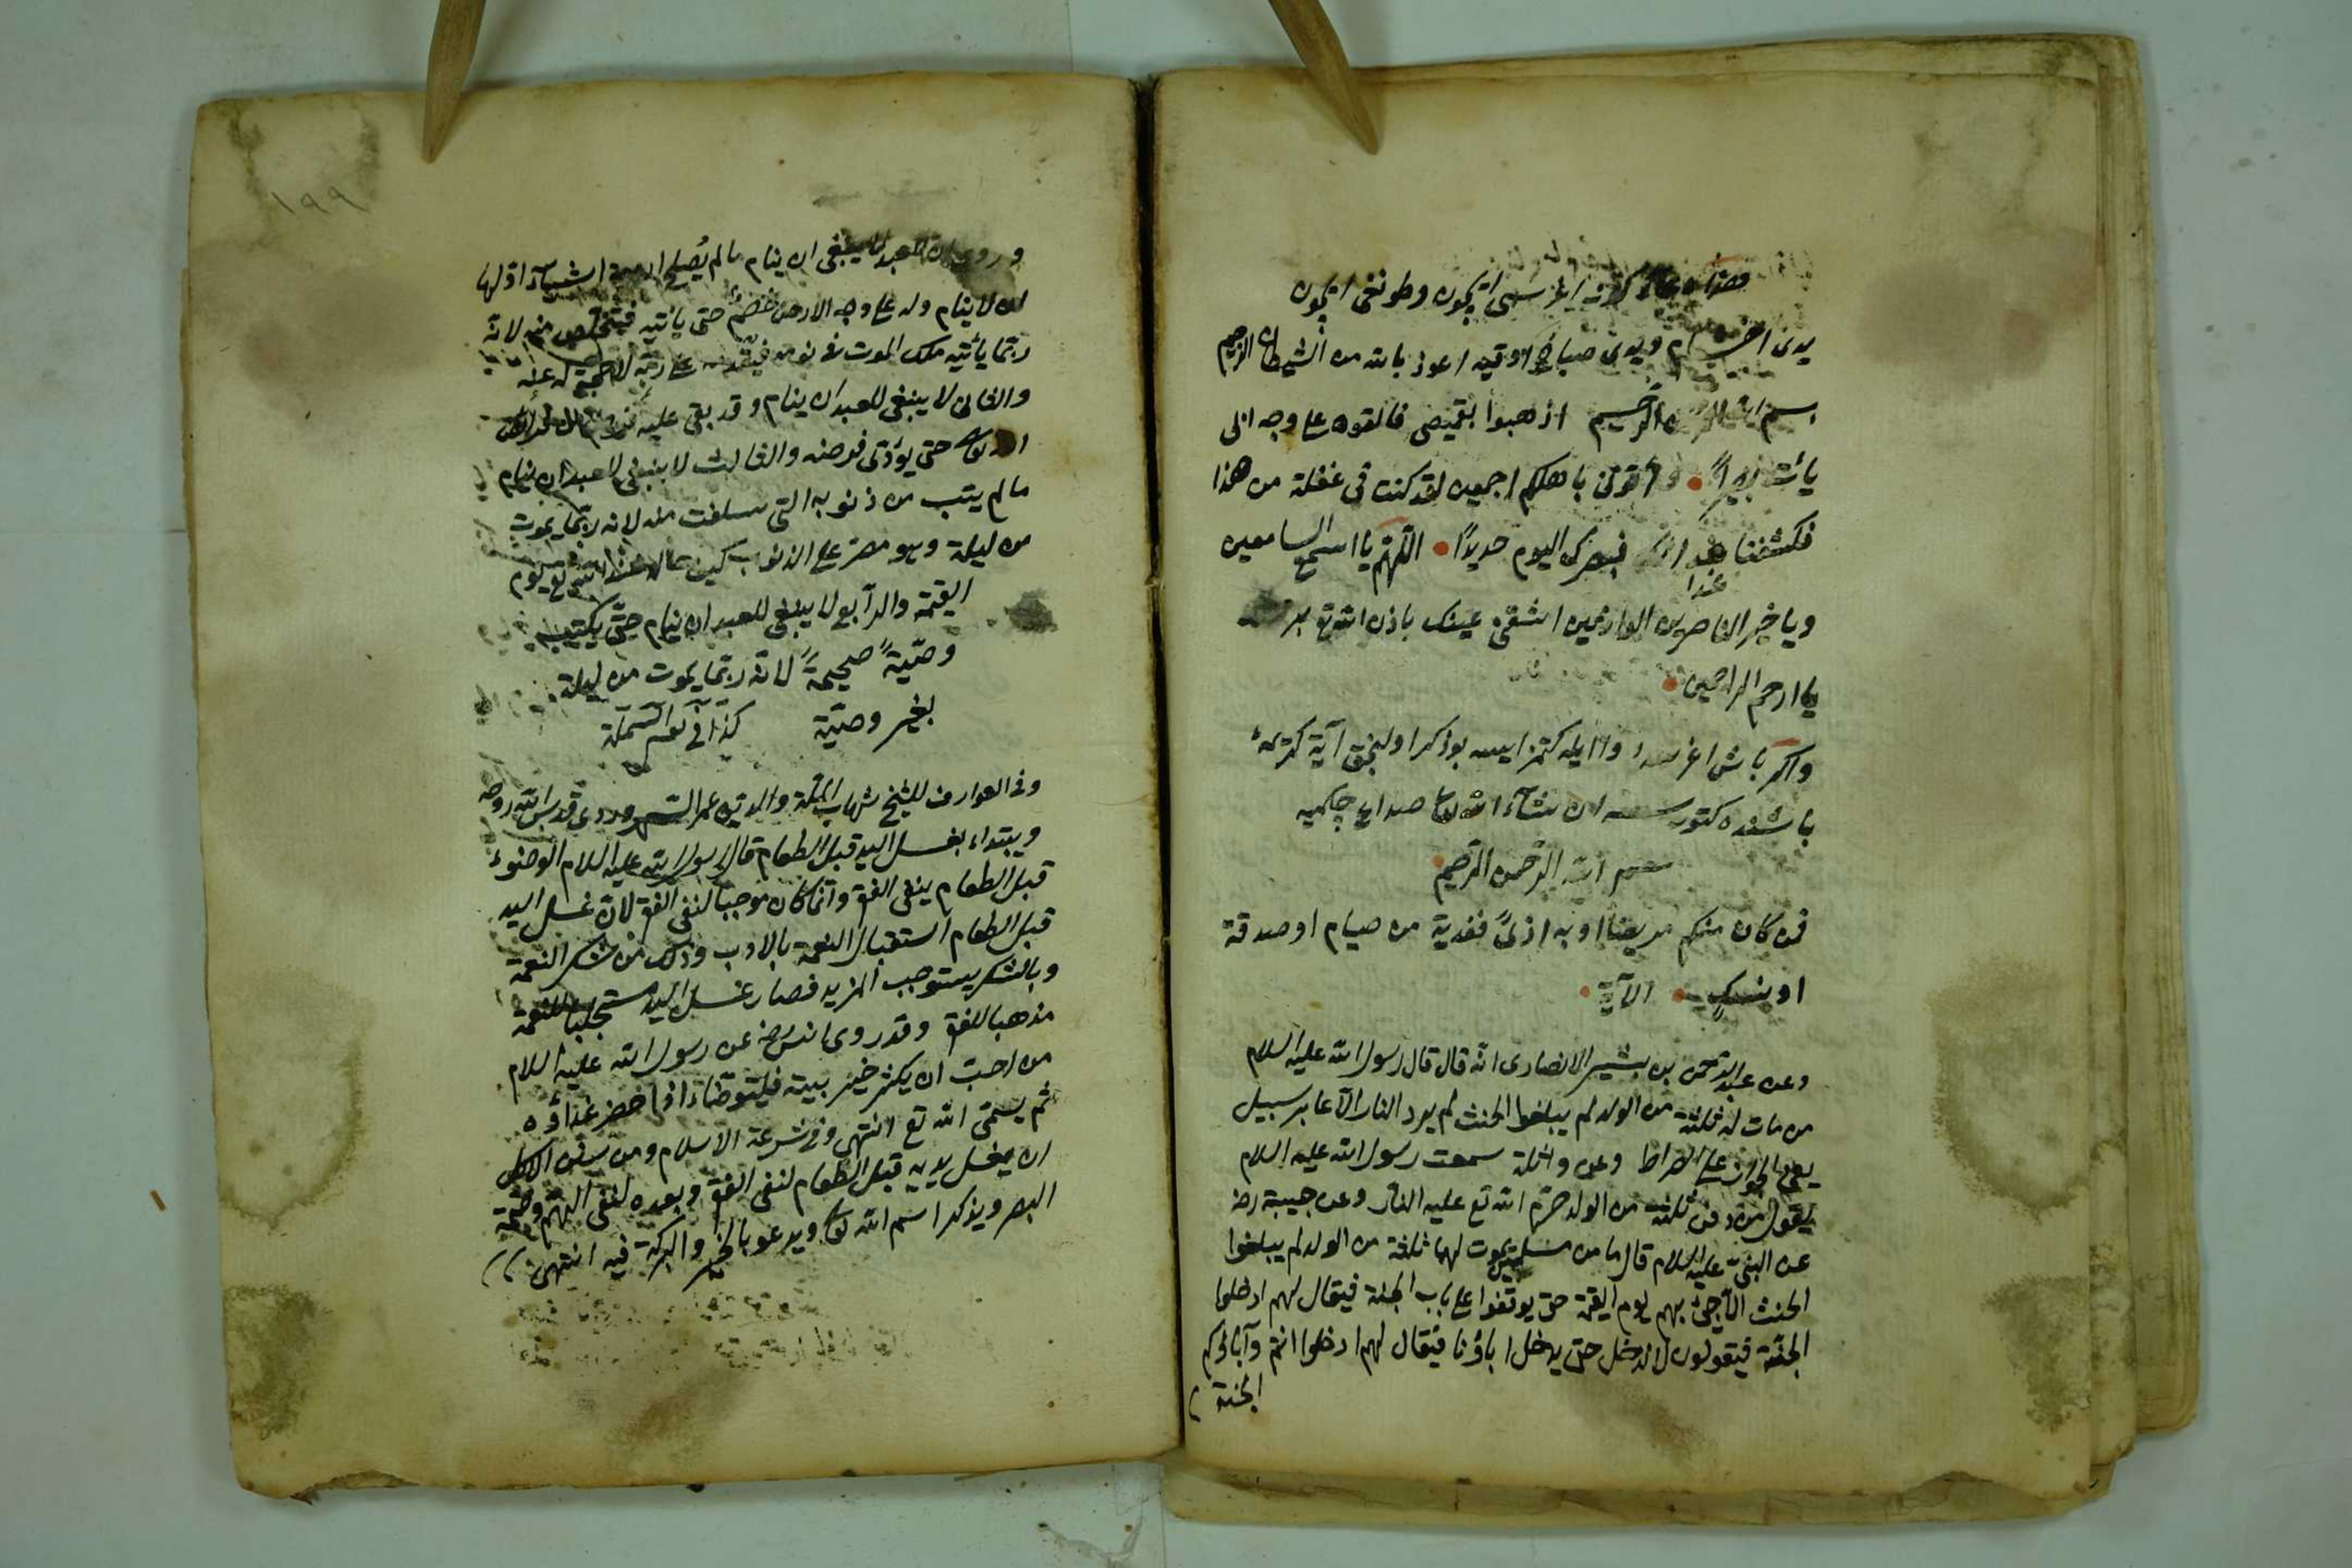 كوز اغرسى ايچون وطونغى ايچون
يدى اخشام ويدى صباح اوقيه اعوذ بالله من الشيطان الرجيم
بسم الله الرحمن الرحيم اذهبوا بقميصى فالقوه على وجه ابى
يأت بصيراً وأتونى باهلكم اجمعين لقد كنت فى غفلة من هذا
فكشفنا فبصرك اليوم حديداً اللهم يا اسمع السامعين
ويا خير الناصرين باذن الله تع
يا ارحم الراحمين
واكر باش اغرسه بوذكر اولنجق آية كريمه
باشنده كتورسه ان شآء الله تعا صداع چكميه
بسم الله الرحمن الرحيم
فمن كان منكم مريضا او به اذىً ففدية من صيام او صدقة
او نسكٍ الآية
وعن عبد الرحمن بن بشير الانصارى انه قال قال رسول الله عليه السلام
من مات له ثلثة من الولد لم يبلغوا الحنث لم يرد النار الا عابر سبيل
يعنى الجواز على الصراط وعن واثلة سمعت رسول الله عليه السلام
يقول من دفن ثلثة من الولد حرم الله تع عليه النار وعن حبيبة رضـ
عن النبى عليه السلام قال ما من مسلمين يموت لهما ثلثة من الولد لم يبلغوا
الحنث الا جئ بهم يوم القيمة حتى يوقفوا على باب الجنة فيقال لهم ادخلوا
الجنة فيقولون لا ندخل حتى يدخل اباؤنا فيقال لهم ادخلوا انتم وآباؤكم
الجنة
١٩٩
وروى ان العبد لا ينبغى ان ينام ما لم يُصلح اربعة اشيآء اولها
ان لا ينام وله على وجه الارض خصمٌ حتى يأتيه فيتخلص منه لانه
ربما يأتيه ملك الموت فى نومه فيقدم على ربه لا حجة له عنده
والثانى لا ينبغى للعبد ان ينام وقد بقى عليه فرض من فرائض
الله تعا حتى يؤدى فرضه والثالث لا ينبغى للعبد ان ينام
ما لم يتب من ذنوبه التى سلفت منه لانه ربما يموت
من ليلة وهو مصر على الذنوب كيف حاله عند الله تع يوم
القيمة والرابع لا ينبغى للعبد ان ينام حتى يكتب
وصيةً صحيحةً لانه ربما يموت من ليلته
بغير وصية كذا فى
وفى العوارف للشيخ شهاب الملة والدين عمر السهروردى قدس الله روحه
ويبتداء بغسل اليد قبل الطعام قال رسول الله عليه السلام الوضوء
قبل الطعام ينفى الفقر وانما كان موجبا لنفى الفقر لان غسل اليد
قبل الطعام استقبال النعمة بالادب وذلك من شكر النعمة
وبالشكر يستوجب المزيد فصار غسل اليد مستجلبا للنعمة
مذهبا للفقر وقد روى انس رضـ عن رسول الله عليه السلام
من احب ان يكثر خير بيته فليتوضأ اذا حضر غذاؤه
ثم يسمى الله تع انتهى وفى شرعة الاسلام ومن سنن الاكل
ان يغسل يديه قبل الطعام لنفى الفقر وبعده لنفى اللهم وصحة
البصر ويذكر اسم الله تعا ويدعو بالخير والبركة فيه انتهى